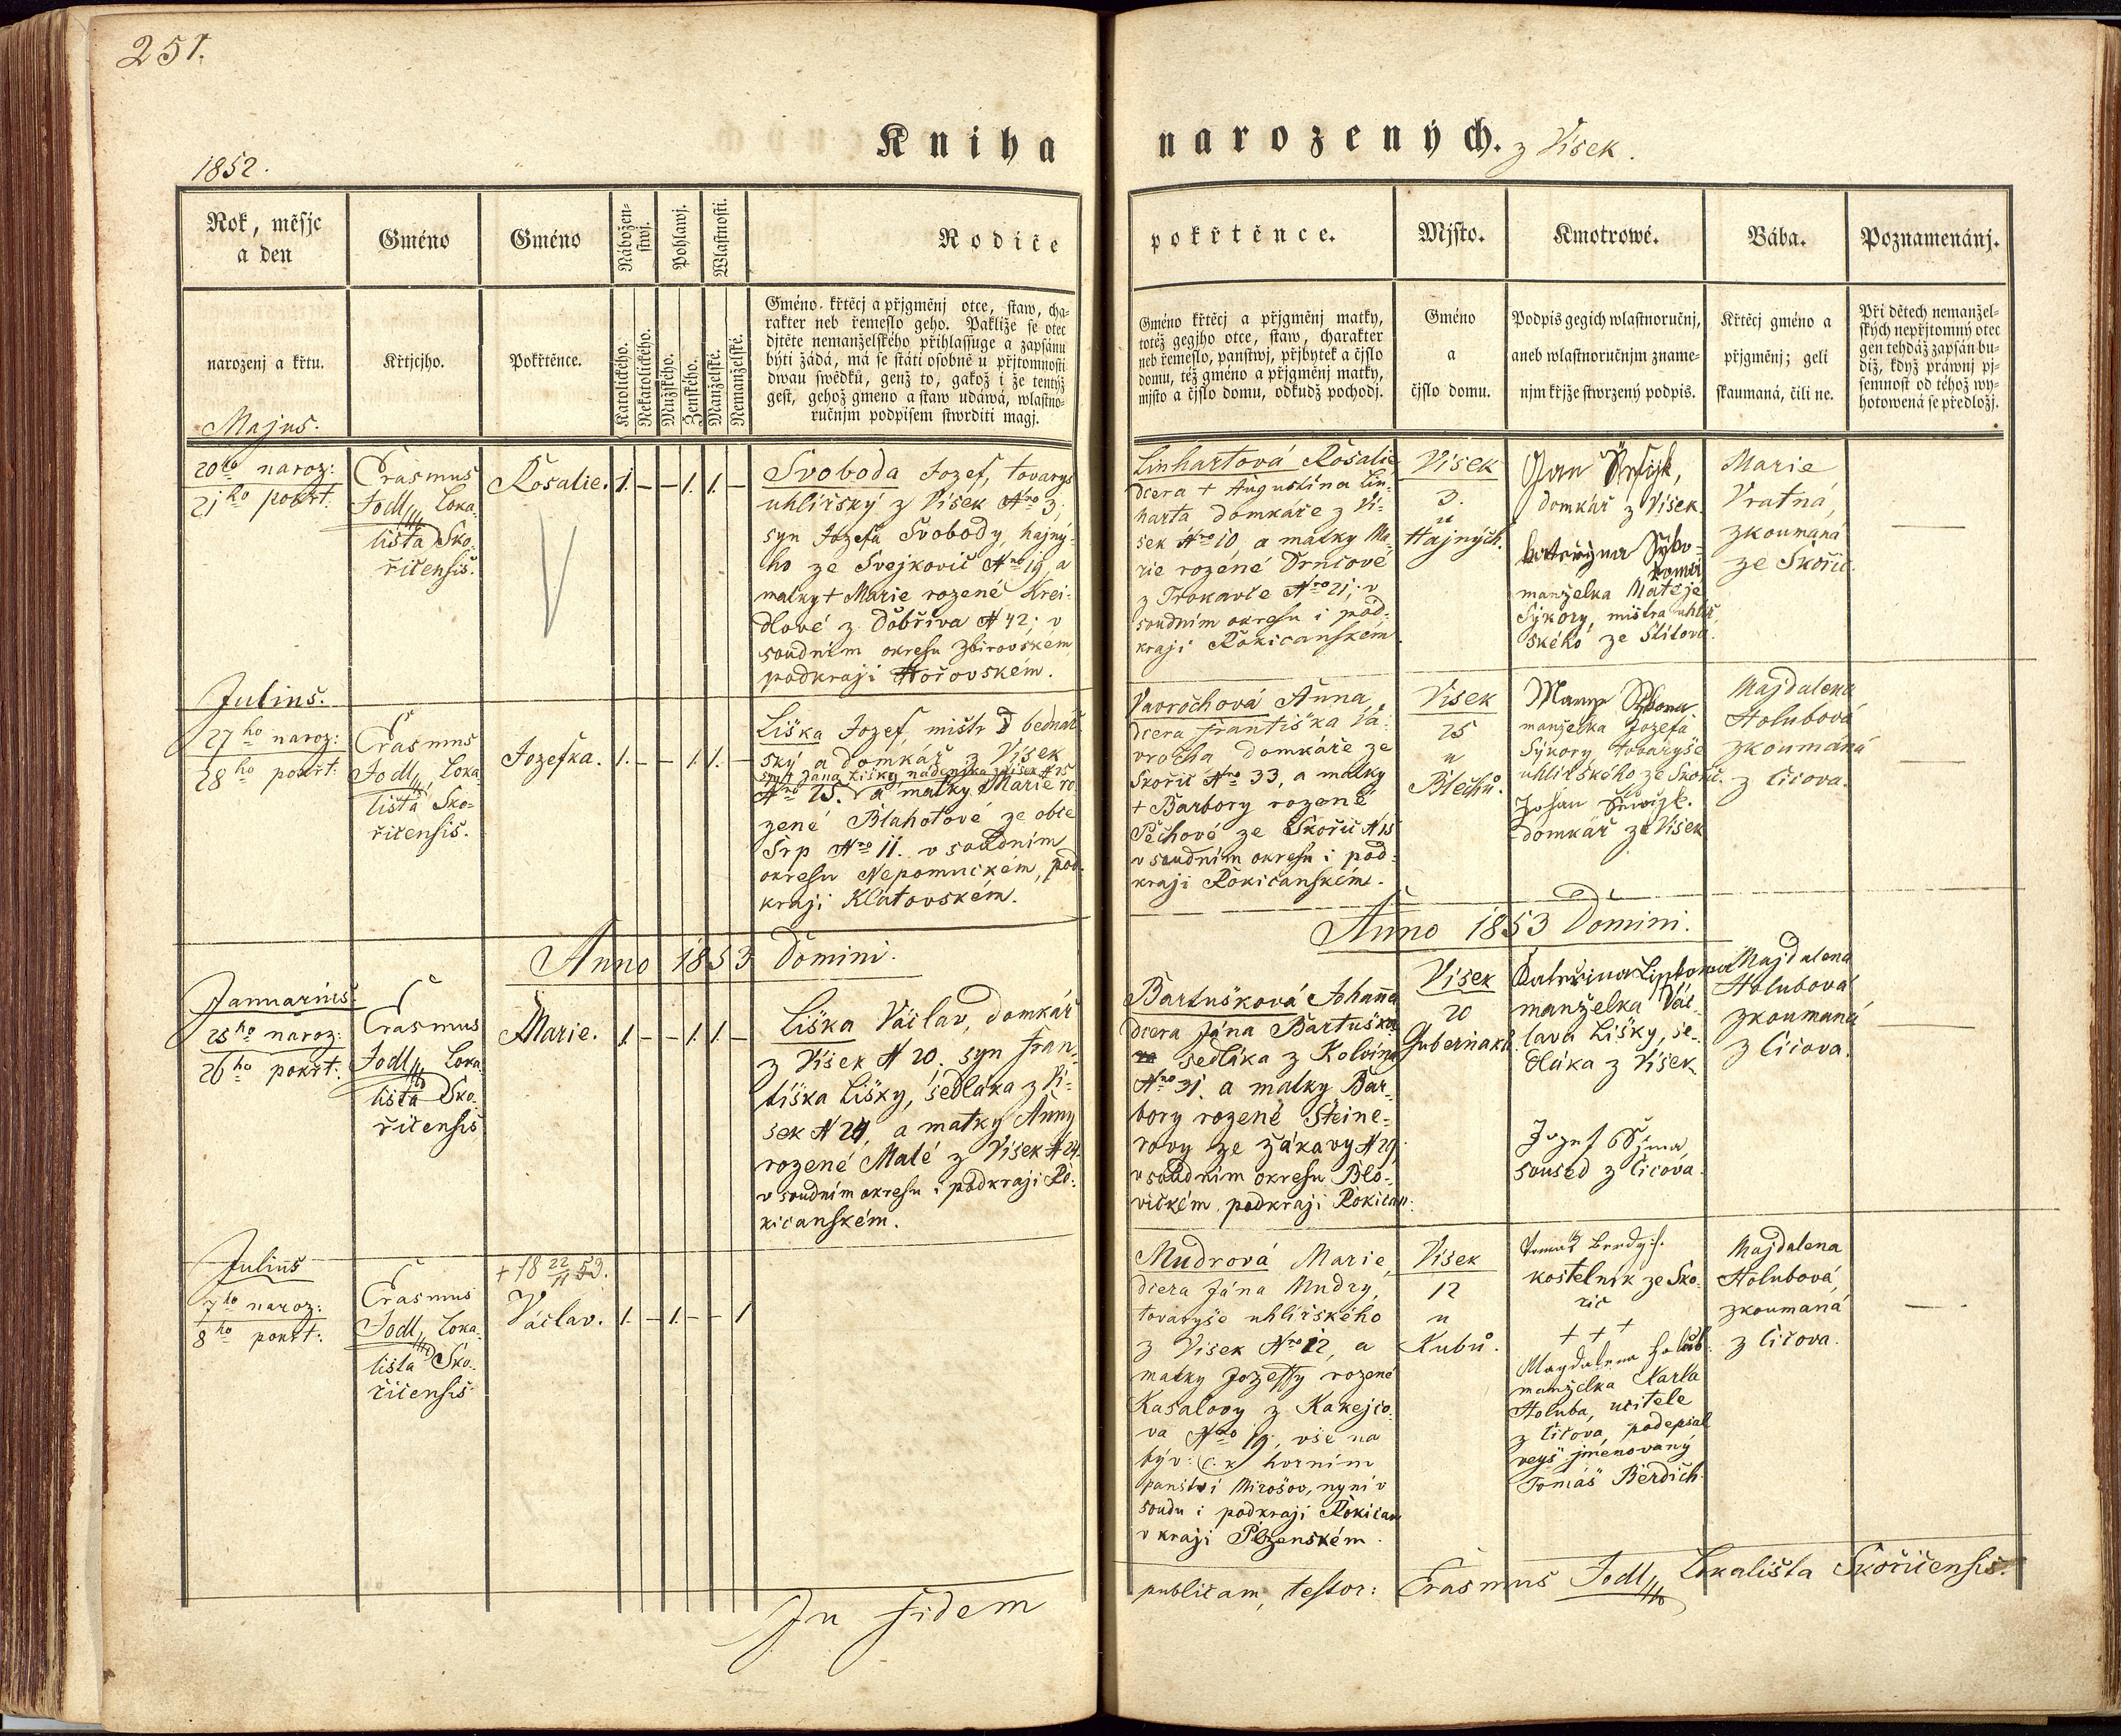 251.
Kniha narozených. z Vísek.
1852.
Rok, měsjc
a den
Gméno
Gméno
Nábožen-
stwj.
Pohlawj.
Wlastnosti.
Rodiče
pokřtěnce.
Mjsto.
Kmotrowé.
Bába.
Poznamenánj.
narozenj a křtu.
Křtjcjho.
Pokřtěnce.
Katolického.
Nekatolického.
Mužského.
Ženského.
Manželské.
Nemanželské.
Gméno křtěcj a přjgměnj otce, staw, cha-
rakter neb řemeslo geho. Pakliže se otec
djtěte nemanželského přihlassuge a zapsánu
býti žádá, má se státi osobně u přjtomnosti
dwau swědků, genž to, gakož i že tentýž
gest, gehož gmeno a staw udáwá, wlastno-
ručnjm podpisem stwrditi magj.
Gméno křtěcj a přjgměnj matky,
totéž gegjho otce, staw, charakter
neb řemeslo, panstwj, přjbytek a čjslo
domu, též gméno a přjgměnj matky,
mjsto a čjslo domu, odkudž pochodj.
Gméno
a
čjslo domu.
Podpis gegich wlastnoručnj,
aneb wlastnoručnjm zname-
njm křjže stwrzený podpis.
Křtěcj gméno a
přjgměnj; geli
skaumaná, čili ne.
Při dětech nemanžel-
ských nepřjtomný otec
gen tehdáž zapsán bu-
diž, když práwnj pj-
semnost od téhož wy-
hotowená se předložj.
Majus.
20ho naroz:
21ho pokřt:
Erasmus
Jodl, Loka-
lista Sko-
řičensis.
Rosalie. 1. – – 1. 1. –
Svoboda Jozef, tovarys
uhlířský z Vísek Nro 3,
syn Jozefa Svobody, hajný-
ho ze Svejkovic Nro 19, a
matky + Marie rozené Krei-
dlové z Dobříva N 42; v
soudním okresu Zbirovském
podkraji Hořovském.
Linhartová Rosalie
dcera + Augustina Lin-
harta domkáře z Ví-
sek Nro 10, a matky Ma-
rie rozené Drničové
z Trokavce Nro 21; v
soudním okresu i pod-
kraji Rokicanském.
Vísek
3.
u
Hajných.
Jan
domkář z Vísek.
Kateřyna Syko-
rowa
manželka Matěje
Sykory, mistra uhlíř-
ského ze Štítova.
Marie
Vratná,
zkoumaná
ze Skořic.
Julius.
27ho naroz:
28ho pokřt:
Erasmus
Jodl, Loka-
lista Sko-
řičensis.
Jozefka. 1. – – 1. 1. –
Liška Jozef, mistr bednář-
ský a domkář z Vísek
syn + Jana Lišky nádeníka z Vísek N 25
Nro 25. a matky Marie ro-
zené Blahotové ze obce
Srp Nro 11. v soudním
okresu Nepomuckém, pod-
kraji Klatovském.
Vavrochová Anna,
dcera Františka Va-
vrocha domkáře ze
Skořic Nro 33, a matky
+ Barbory rozené
Pěchové ze Skořic N 15
v soudním okresu i pod-
kraji Rokicanském.
Vísek
25
u
Blechů.
manželka Jozefa
Sýkory tovaryše
uhlířského ze Skořic.
Johan
domkář z Vísek
Majdalena
Holubová
zkoumaná
z Čičova.
Anno 1853 Domini.
Anno 1853 Domini.
Januarius.
25ho naroz:
26ho pokřt:
Erasmus
Jodl, Loka-
lista Sko-
řičensis
Marie. 1. – – 1. 1. –
Liška Václav, domkář
z Vísek N 20, syn Fran-
tiška Lišky, sedláka z Ví-
sek N 24, a matky Anny
rozené Malé z Vísek N 24.
v soudním okresu i podkraji Ro-
kicanském.
Bartušková Johanna
dcera Jána Bartuška
sedláka z Kolvína
Nro 31. a matky Bar-
bory rozené Steine-
rovy ze Žákavy N 29,
v soudním okresu Blo-
vickém, podkraji Rokican:
Vísek
20
Guberňaků.
Kateřina Lisskowa
manželka Vác-
lava Lišky, se-
dláka z Vísek
Jozef Ssima,
soused z Čičova.
Majdalena
Holubová
zkoumaná
z Čičova.
Julius
7ho naroz:
8ho pokřt:
Erasmus
Jodl, Loka-
lista Sko-
řičensis.
+ 18 22/11 59.
Václav. 1. – 1. – – 1
Mudrová Marie,
dcera Jána Mudry,
tovaryše uhlířského
z Vísek Nro 12, a
matky Jozeffy rozené
Kasalovy z Kakejco-
va Nro 19, vše na
býv: c. k. horním
panství Mirošov, nyní v
soudu i podkraji Rokican
v kraji Plzenském.
Vísek
12
u
Kubů.
kostelník ze Sko-
řic
+ + +
Magdalena Holub
manželka Karla
Holuba, učitele
z Čičova, podepsal
veyš jmenovaný
Tomáš Berdich.
Majdalena
Holubová,
zkoumaná
z Čičova.
In fidem
publicam, testor: Erasmus Jodl, Lokalista Skořičensis.